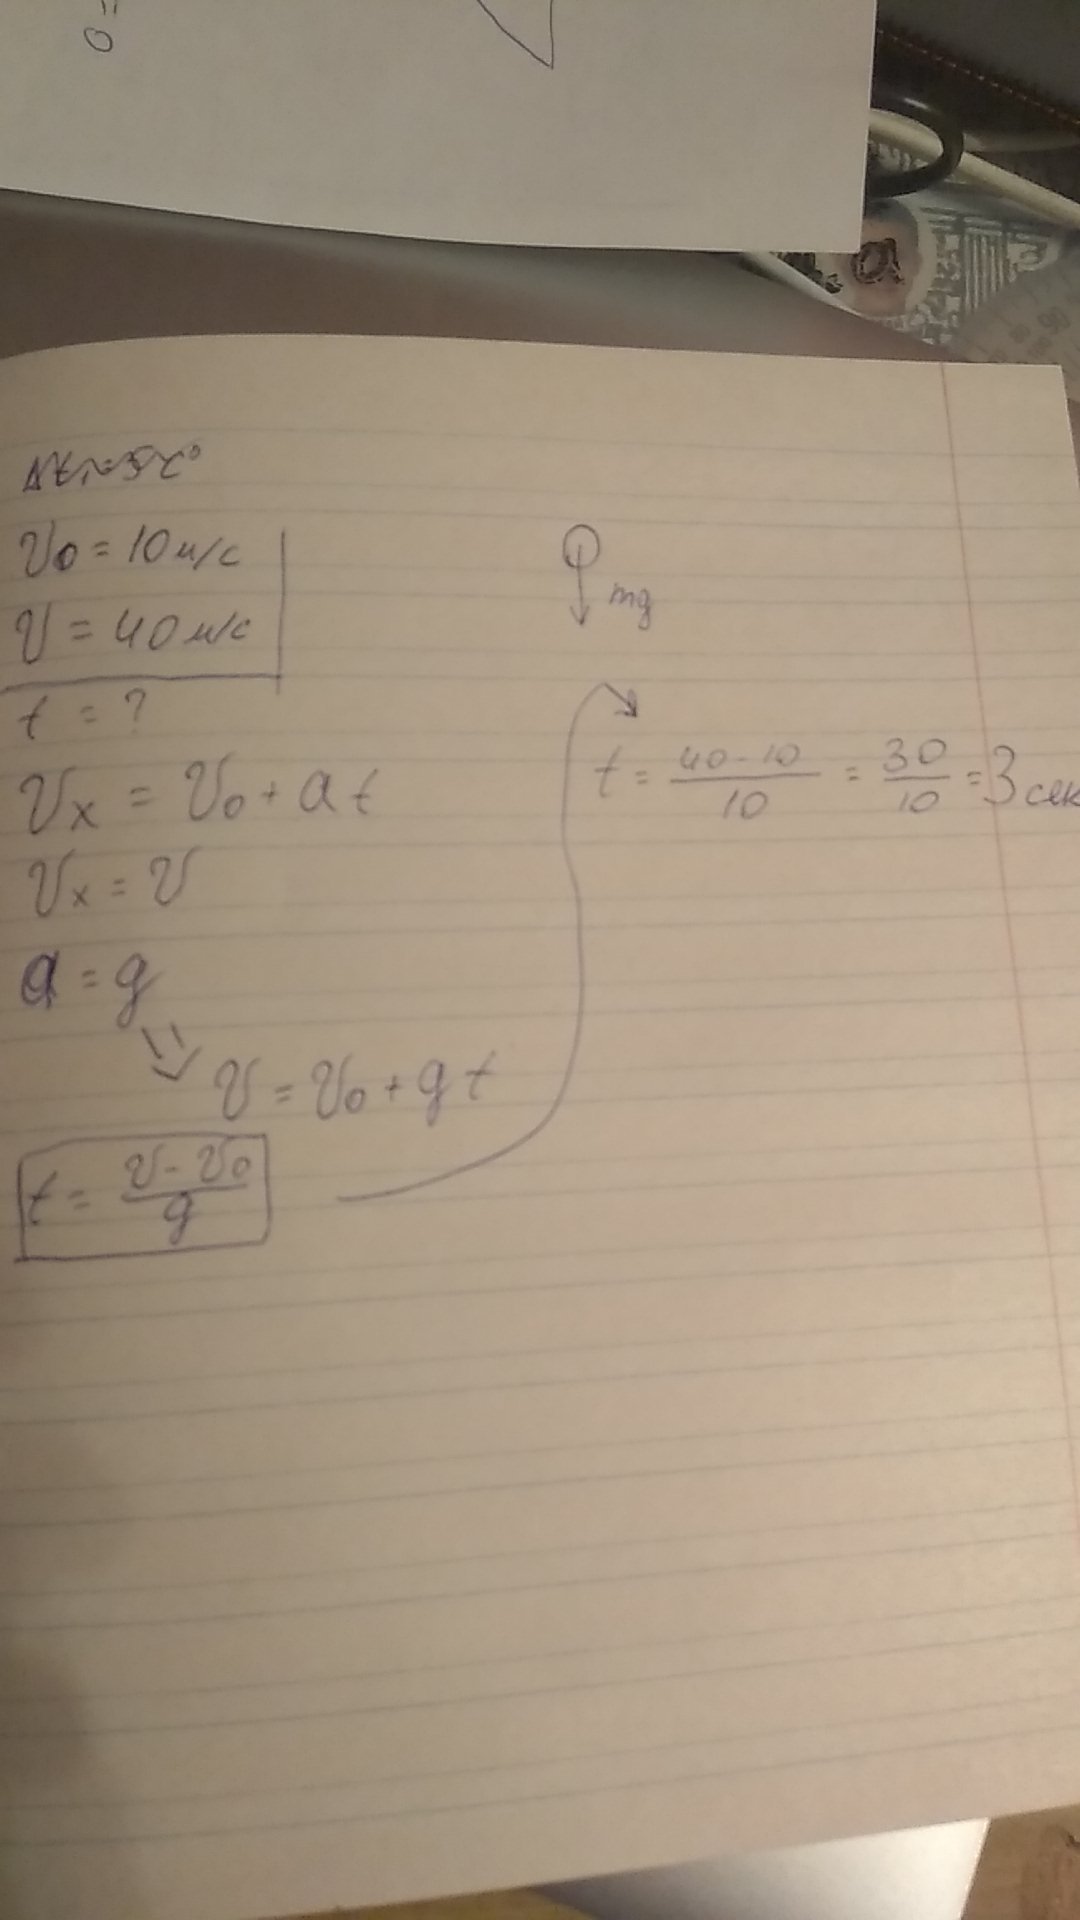 0 =
V₀ = 10 м/с
V = 40 м/с
t = ?
Vₓ = V₀ + a t
Vₓ = V
a = g
⇒ V = V₀ + g t
t = (V - V₀)/g
mg
t = (40 - 10)/10 = 30/10 = 3 сек
90